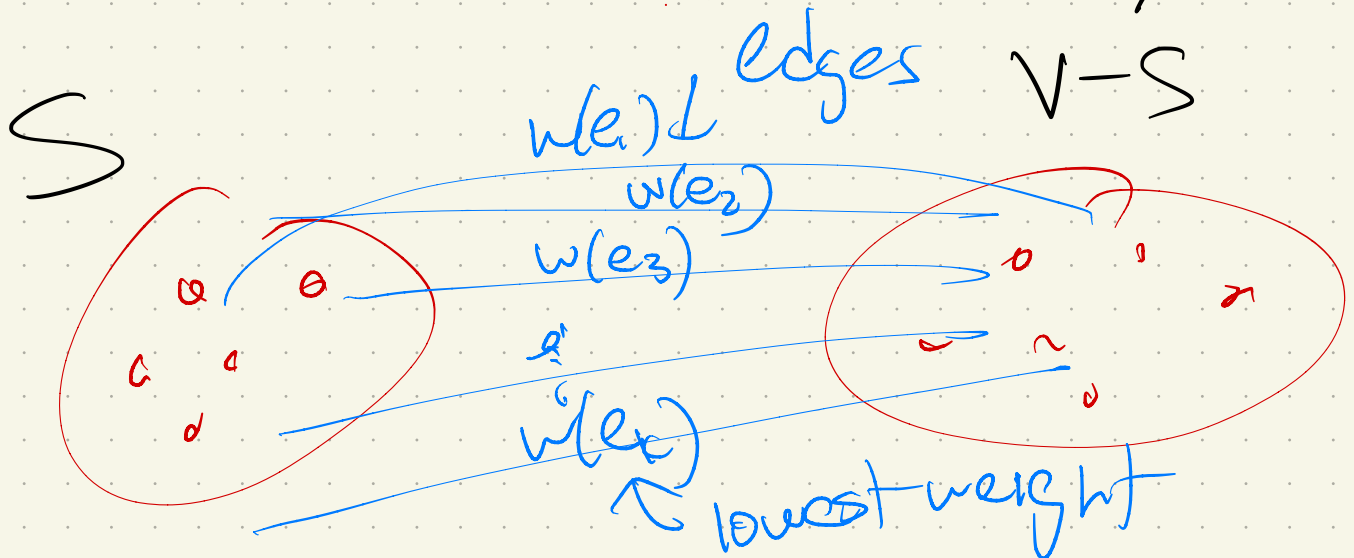 edges
V-S
S
w(e₁)
w(e₂)
w(e₃)
lowest weight